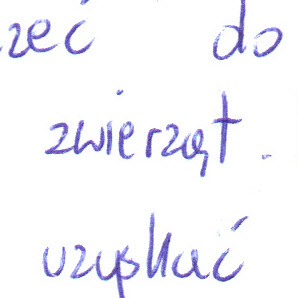 zeć do
zwierząt.
uzyskać